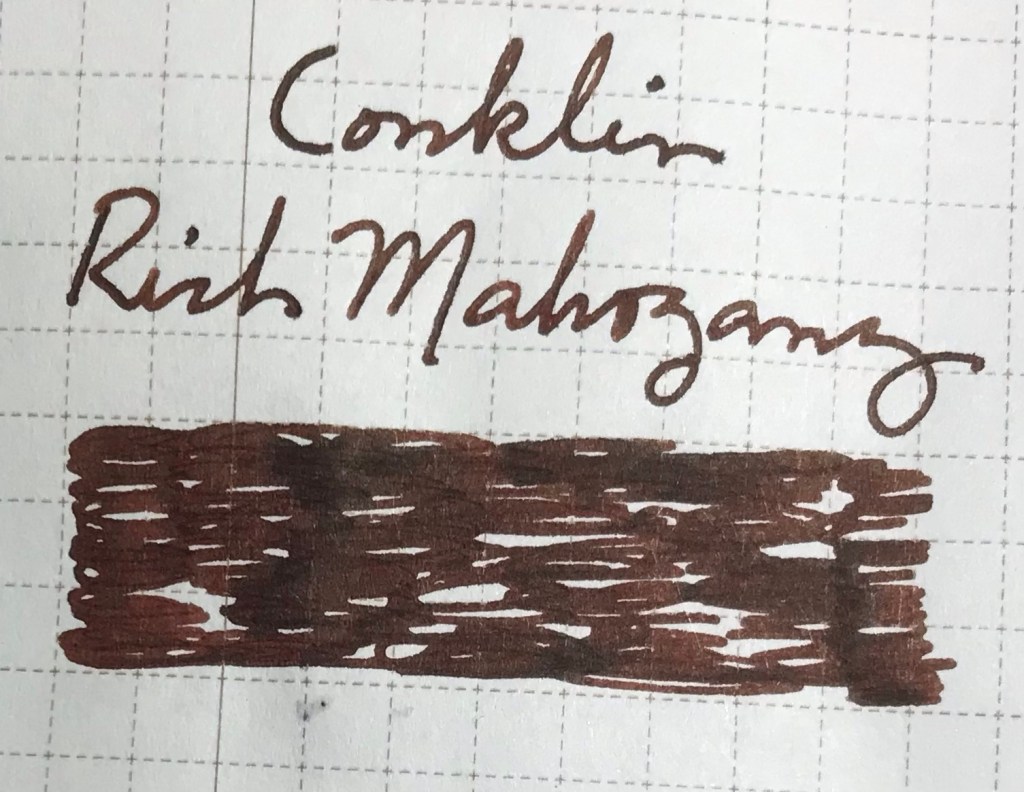 Conklin
Rich Mahogany